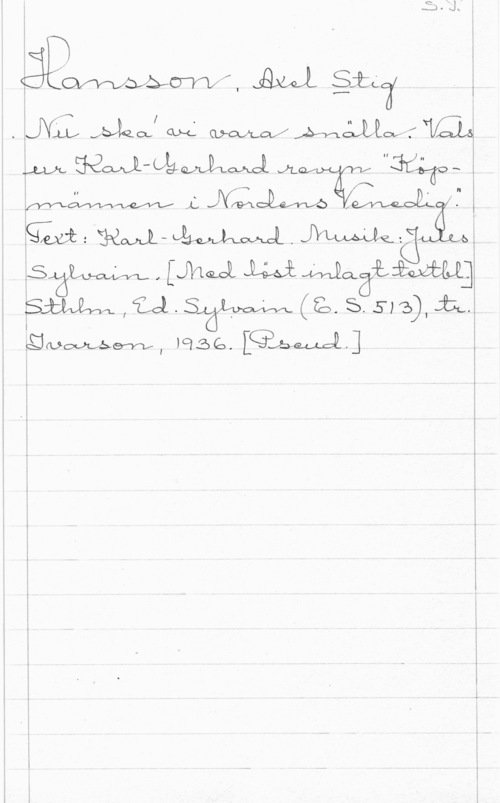 S. J.
Hansson, Axel Stig
Nu ska' vi vara snälla. Vals
ur Karl-Gerhard revyn "Köp-
männen i Nordens Venedig".
Text: Karl-Gerhard. Musik: Jules
Sylvain. [Med löst inlagt textbl.]
Sthlm, Ed. Sylvain (E. S. 513), tr.
Ivarson, 1936. [Pseud.]